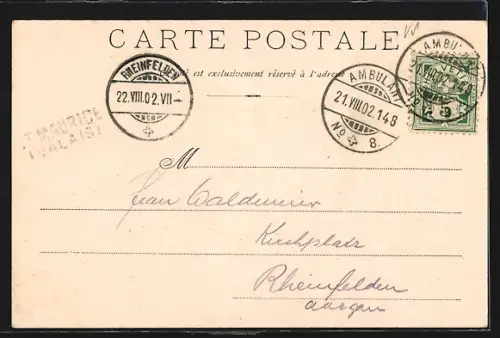 CARTE POSTALE
est exclusivement réservé à l'adresse
RHEINFELDEN
22.VIII.02.VII-
AMBULANT
21.VIII.02.148
No 8.
AMBULANT
21.VIII.02.148
No 8.
ST MAURICE
(VALAIS)
M
Frau Waldmeier
Kirchplatz
Rheinfelden
Aargau